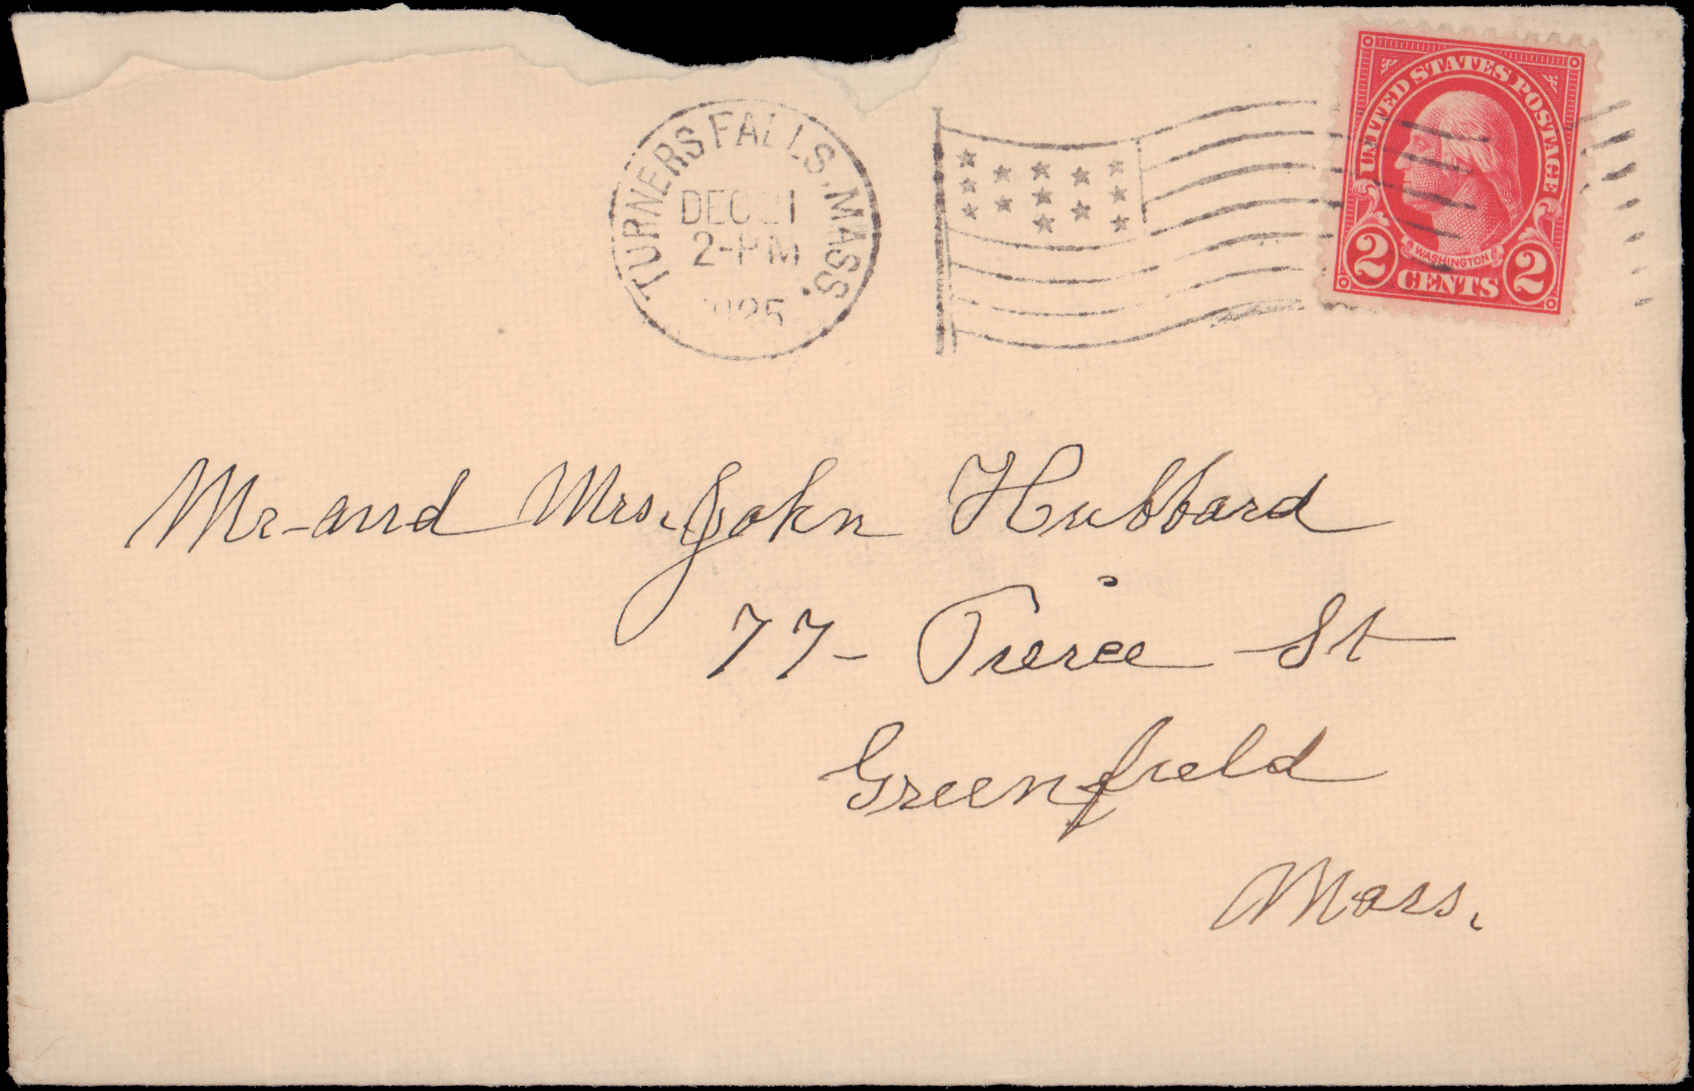 TURNERS FALLS, MASS.
DEC 21
2-PM
1925
UNITED STATES POSTAGE
WASHINGTON
2 CENTS 2
Mr and Mrs. John Hubbard
77- Pierce St
Greenfield
Mass.